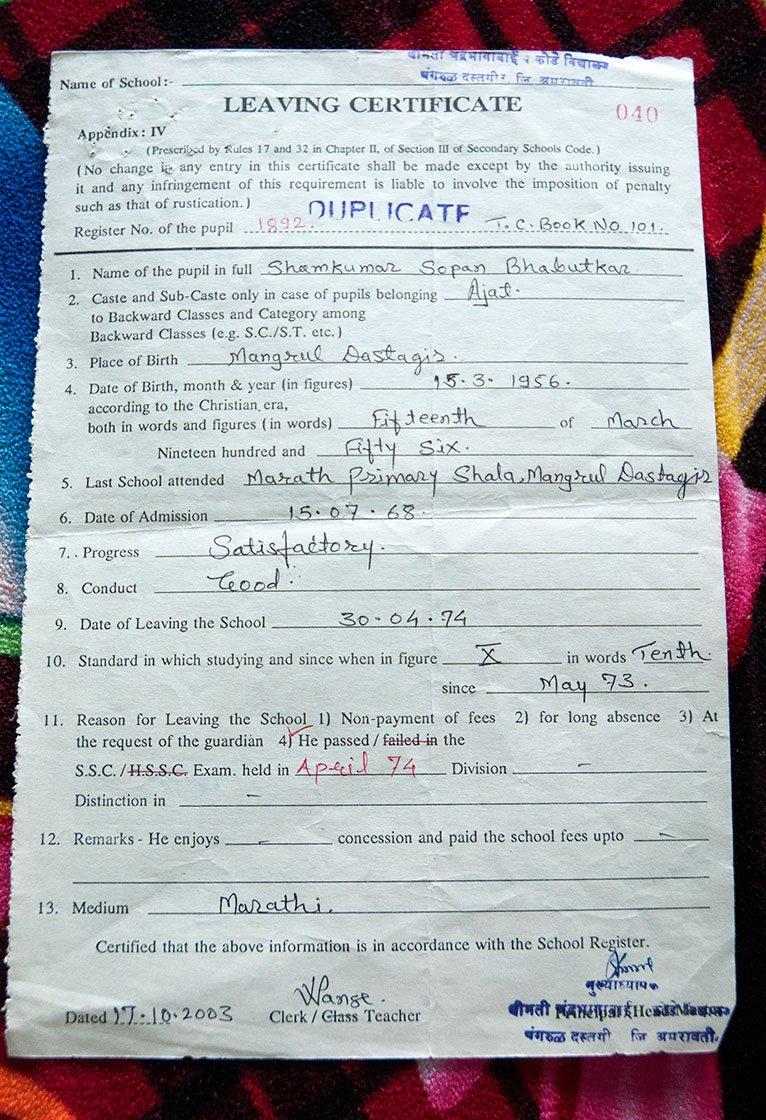 Name of School:- श्रीमती चंद्रभागाबाई र कोडे विद्यालय
मंगरूळ दस्तगीर, जि अमरावती
LEAVING CERTIFICATE
040
Appendix: IV
(Prescribed by Rules 17 and 32 in Chapter II, of Section III of Secondary Schools Code.)
(No change in any entry in this certificate shall be made except by the authority issuing
it and any infringement of this requirement is liable to involve the imposition of penalty
such as that of rustication.) DUPLICATE
Register No. of the pupil 1892. T.C. Book No 101.
1. Name of the pupil in full Shamkumar Sopan Bhabutkar.
2. Caste and Sub-Caste only in case of pupils belonging Ajat.
to Backward Classes and Category among
Backward Classes (e.g. S.C./S.T. etc.)
3. Place of Birth Mangrul Dastagir.
4. Date of Birth, month & year (in figures) 15.3.1956.
according to the Christian era,
both in words and figures (in words) Fifteenth of March
Nineteen hundred and Fifty Six.
5. Last School attended Marath Primary Shala, Mangrul Dastagir
6. Date of Admission 15.07.68.
7. Progress Satisfactory.
8. Conduct Good.
9. Date of Leaving the School 30.04.74
10. Standard in which studying and since when in figure X in words Tenth.
since May 73.
11. Reason for Leaving the School 1) Non-payment of fees 2) for long absence 3) At
the request of the guardian 4) He passed / failed in the
S.S.C. / H.S.S.C. Exam. held in April 74 Division -
Distinction in -
12. Remarks - He enjoys - concession and paid the school fees upto -
13. Medium Marathi.
Certified that the above information is in accordance with the School Register.
मुख्याध्यापक
Dated 17.10.2003 Clerk / Class Teacher Principal / Head Master
श्रीमती चंद्रभागाबाई
मंगरूळ दस्तगी जि अमरावती.